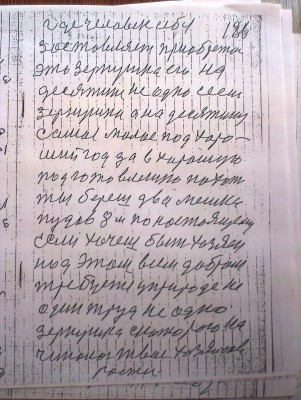 где человек себя 186
заставляет приобретать
это зернушка его на
десятине не одно семя
зернушки а на десятину
самае малае под харо-
ший год да в харошую
подготовленно пахот
ты береш два мешка
пудов 8 и по настоящему
если хочеш быть хозяин
под этом всем добром
требует природе не
один труд не одно
зернушка скоторого на
хозяйсов
расти